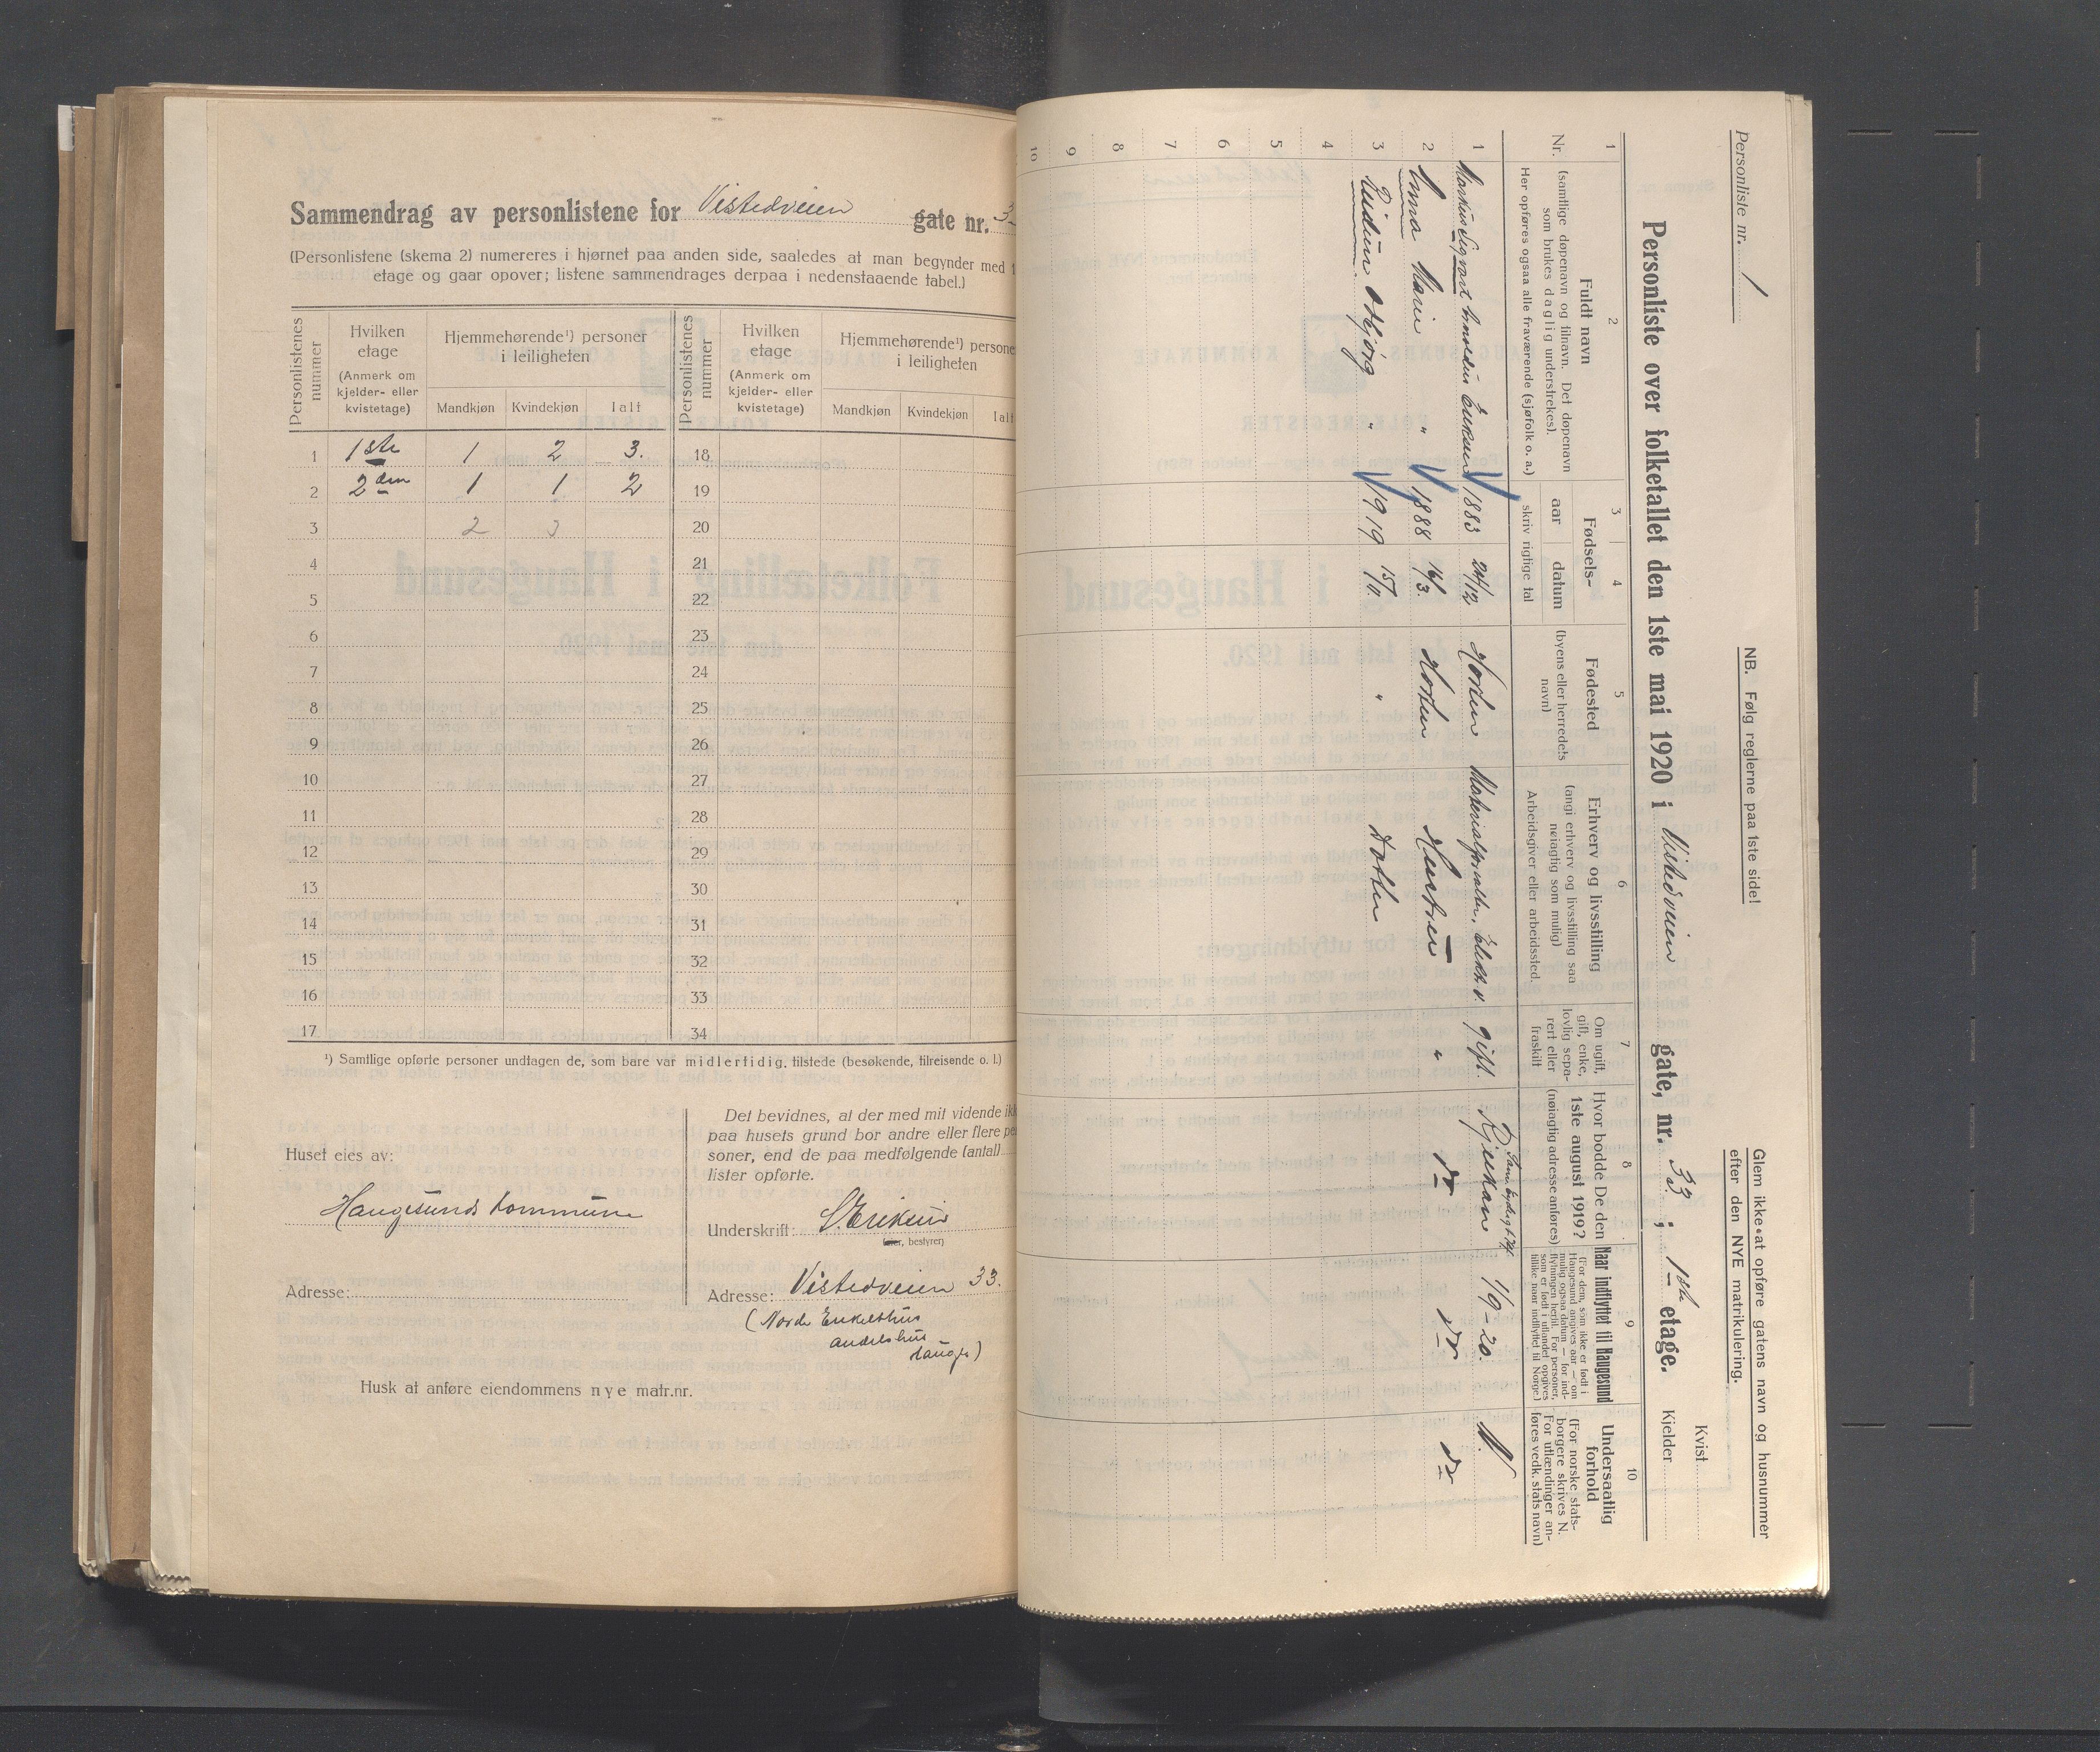 Sammendrag av personlistene for Vistedveien gate nr. 3
(Personlistene (skema 2) numereres i hjørnet paa anden side, saaledes at man begynder med 1
etage og gaar opover; listene sammendrages derpaa i nedenstaaende tabel.)
Personlistenes nummer
Hvilken etage
(Anmerk om kjelder- eller kvistetage)
Hjemmehørende¹) personer i leiligheten
Mandkjøn Kvindekjøn Ialt
Personlistenes nummer
Hvilken etage
(Anmerk om kjelder- eller kvistetage)
Hjemmehørende¹) persone
i leiligheten
Mandkjøn Kvindekjøn Ialt
1 1ste 1 2 3. 18
2 2den 1 1 2 19
3 2 3 20
4 21
5 22
6 23
7 24
8 25
9 26
10 27
11 28
12 29
13 30
14 31
15 32
16 33
17 34
¹) Samtlige opførte personer undtagen de, som bare var midlertidig tilstede (besøkende, tilreisende o. l.)
Huset eies av:
Haugesunds kommune
Adresse:
Det bevidnes, at der med mit vidende ikk
paa husets grund bor andre eller flere pe
soner, end de paa medfølgende (antall)
lister opførte.
Underskrift: S. Eriksen
(eier, bestyrer)
Adresse: Vistedveien 33.
Husk at anføre eiendommens nye matr.nr.
Personliste nr. 1
NB. Følg reglerne paa 1ste side!
Glem ikke at opføre gatens navn og husnummer
efter den NYE matrikulering.
Personliste over folketallet den 1ste mai 1920 i Vistedveien gate, nr. 33 ; 1ste etage.
Kvist
Kjelder
1 2 3 4 5 6 7 8 9 10
Nr.
Fuldt navn
(samtlige døpenavn og tilnavn. Det døpenavn
som brukes daglig understrekes).
Her opføres ogsaa alle fraværende (sjøfolk o. a.)
Fødsels-
aar datum
skriv rigtige tal
Fødested
(byens eller herredets
navn)
Erhverv og livsstilling
(angi erhverv og livsstilling saa
nøiagtig som mulig)
Arbeidsgiver eller arbeidssted
Om ugift,
gift, enke,
lovlig sepa-
rert eller
fraskilt
Hvor bodde De den
1ste august 1919?
(nøiagtig adresse anføres)
Naar indflyttet til Haugesund
(For dem, som ikke er født i
Haugesund angives aar — om
mulig ogsaa datum — for ind-
flytningen hertil. For personer,
som er født i utlandet opgives
tillike naar indflyttet til Norge.)
Undersaatlig
forhold
(For norske stats-
borgere skrives N.
For utlændinger an-
føres vedk. stats navn)
1 Markus Sigvart Eriksen 1883 24/12 Horten Materialforvalter, Elekt. v. gift. Rjukan 1/9-20. N.
2 Emma Marie " 1888 16/3. Horten Hustru " do do do
3 Reidun Asbjørg " 1919 15/11. " Datter
4
5
6
7
8
9
10